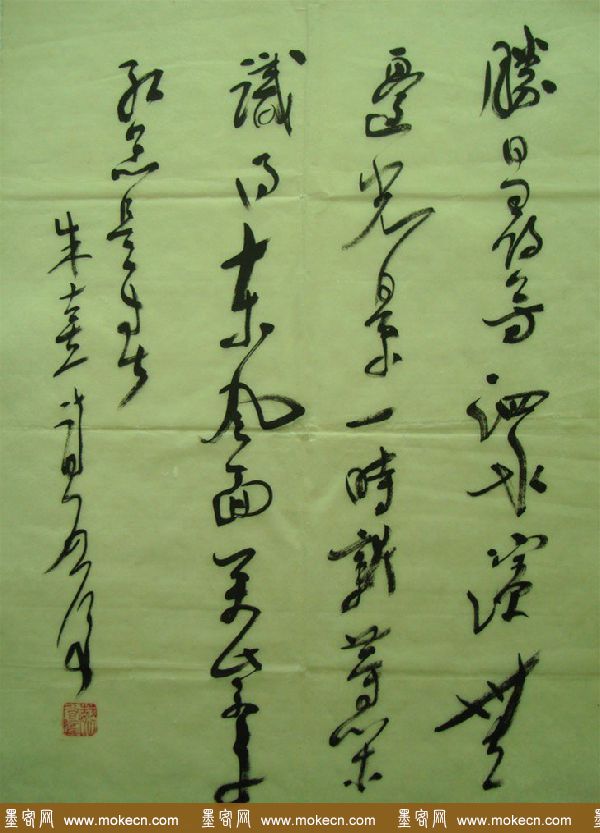 勝日尋芳泗水濱無
邊光景一時新等閑
識得東風面萬紫千
紅總是春
朱熹詩
墨客网 www.mokecn.com 墨客网 www.mokecn.com 墨客网 www.mokecn.com